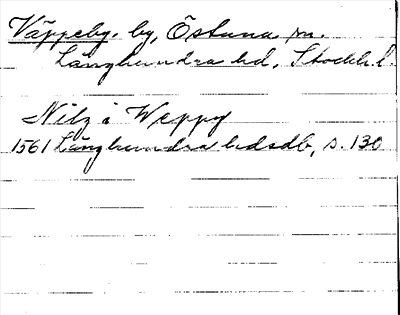 Väppeby. by, Östuna sn.
Långhundra hd, Stockh. l.
Nilz i Weppy
1561 Långhundra hdsdb, s. 130